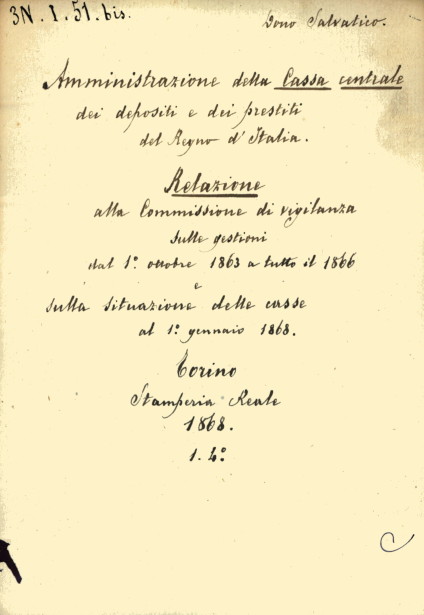 3N. I. 51. bis.
Dono Salvatico.
Amministrazione della Cassa centrale
dei depositi e dei prestiti
del Regno d'Italia.
Relazione
alla Commissione di vigilanza
sulle gestioni
dal 1º. ottobre 1863 a tutto il 1866
e
sulla situazione delle casse
al 1º. gennaio 1868.
Torino
Stamperia Reale
1868.
1. 4º
C